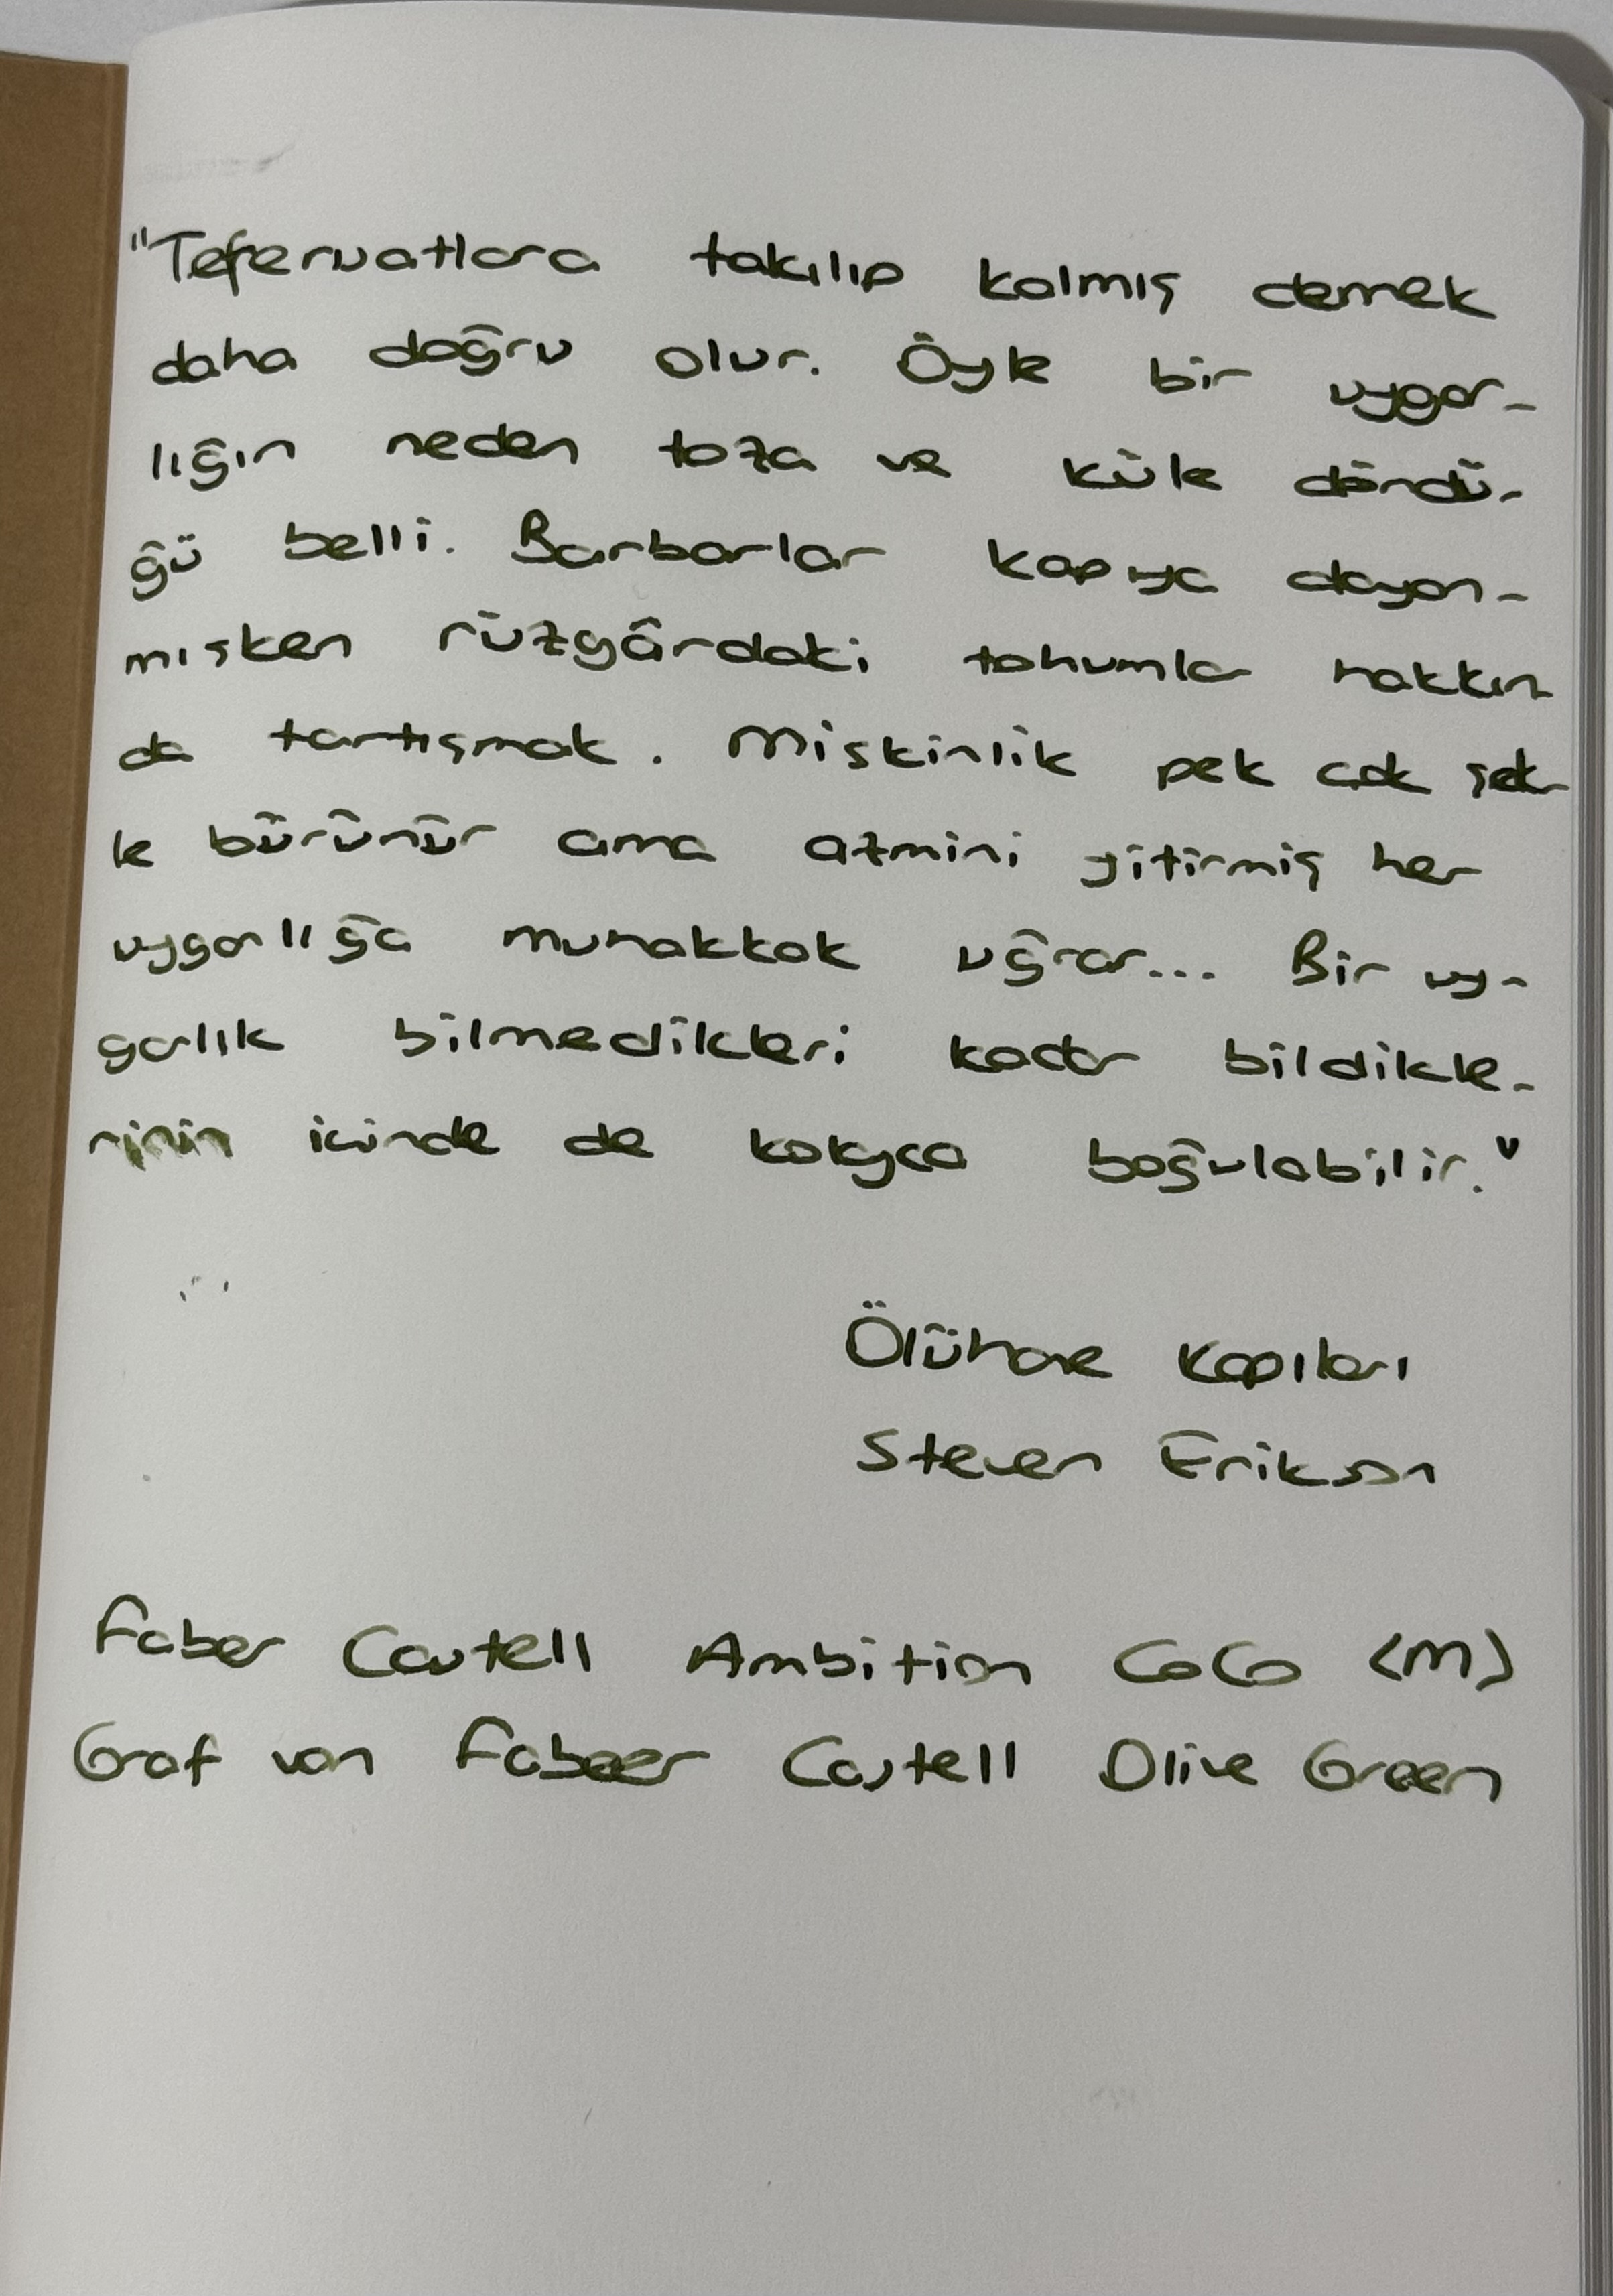 "Teferruatlara takılıp kalmış demek
daha doğru olur. Öyle bir uygar-
lığın neden toza ve küle döndü-
ğü belli. Barbarlar kapıya dayan-
mışken rüzgârdaki tohumlar hakkın-
da tartışmak. Miskinlik pek çok şek-
le bürünür ama azmini yitirmiş her
uygarlığa muhakkak uğrar... Bir uy-
garlık bilmedikleri kadar bildikle-
rinin içinde de kolayca boğulabilir."
Ölühane Kapıları
Steven Erikson
Faber Castell Ambition CoCo (M)
Graf von Fabeer Castell Olive Green